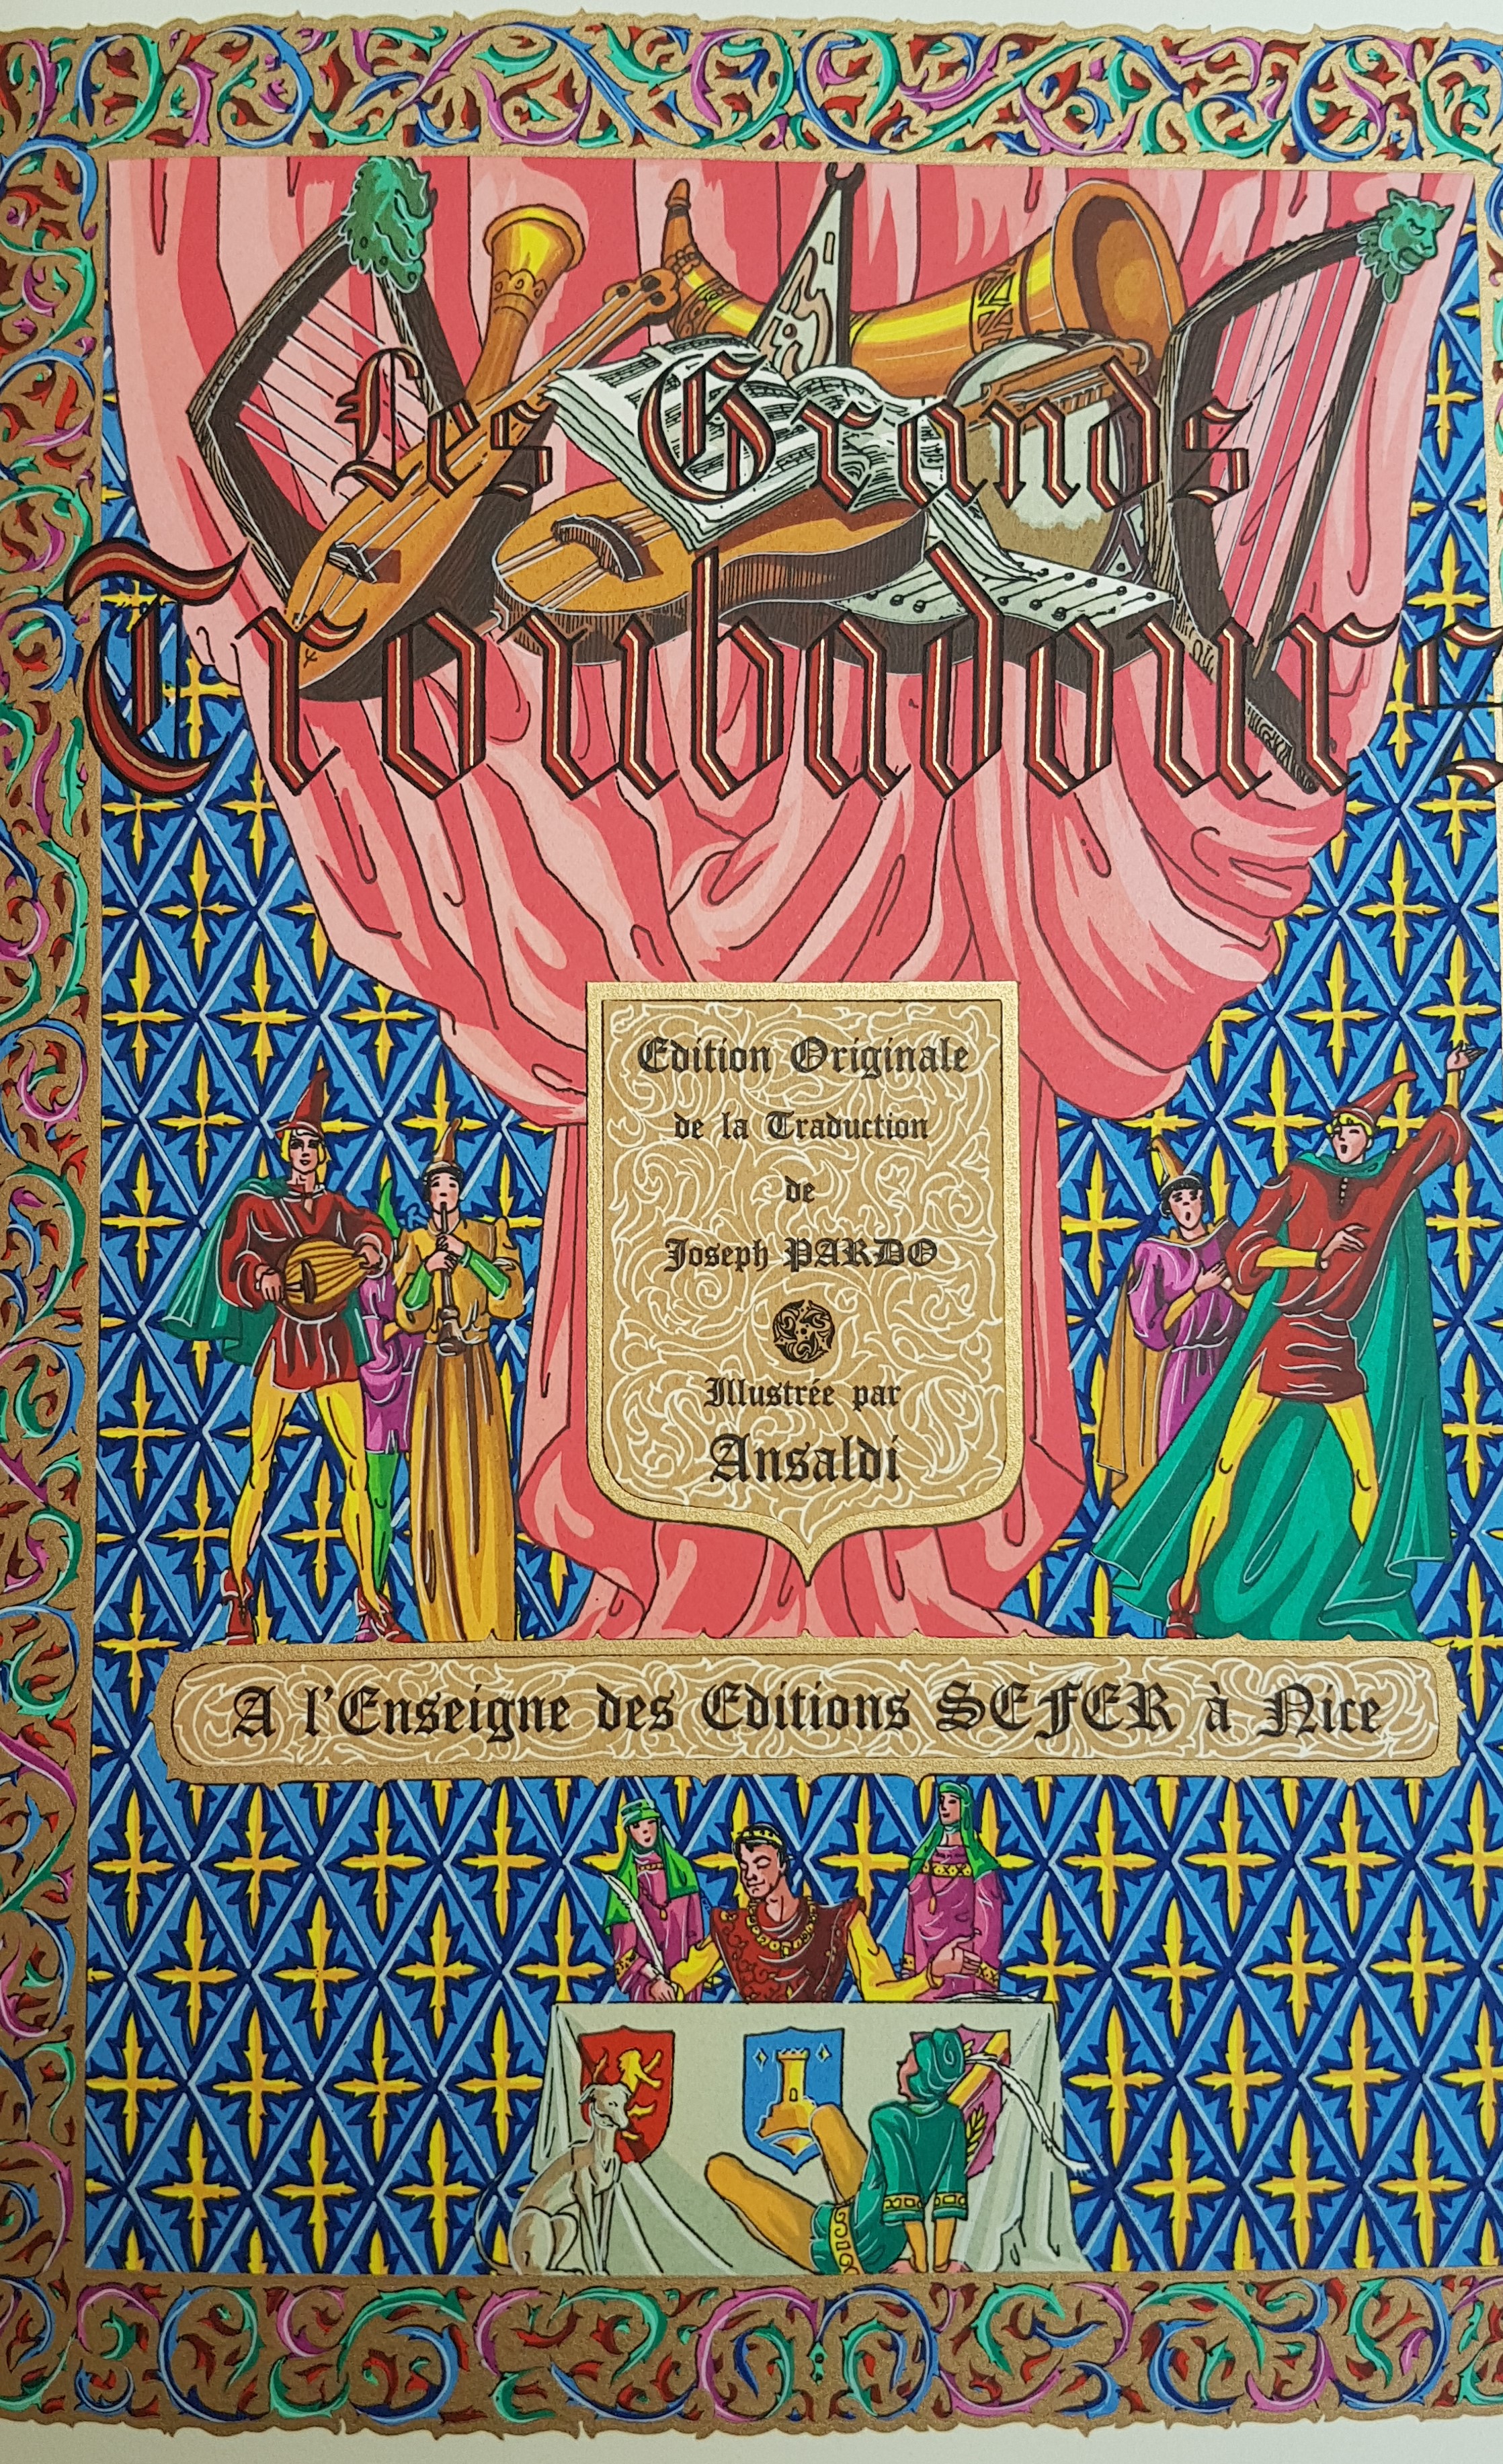 Les Grands
Troubadours
Edition Originale
de la Traduction
de
Joseph PARDO
Illustrée par
Ansaldi
A l'Enseigne des Editions SEFER à Nice